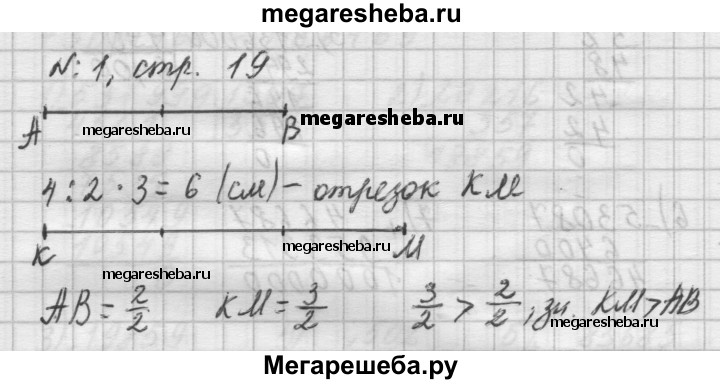 megaresheba.ru
№ 1, стр. 19
A megaresheba.ru B megaresheba.ru
4 : 2 · 3 = 6 (см) – отрезок КМ
К megaresheba.ru megaresheba.ru М
АВ = 2/2 КМ = 3/2 3/2 > 2/2, зн. КМ > АВ
megaresheba.ru
Мегарешеба.ру